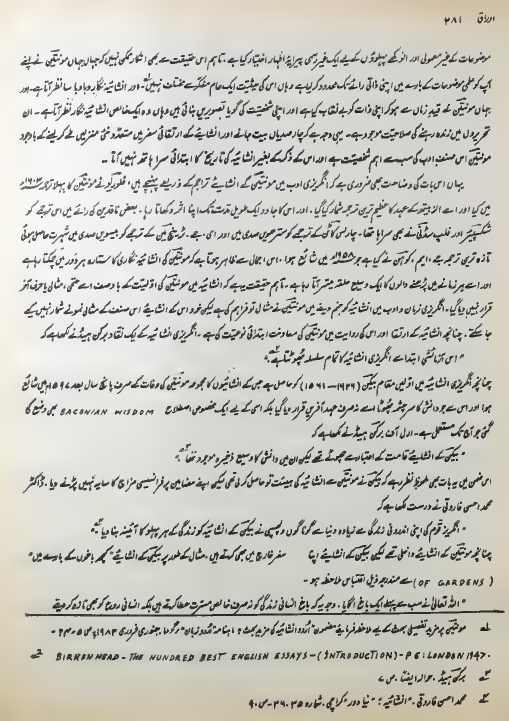 اوراق ۲۸۱
موضوعات کے غیر معمولی اور انوکھے پہلوؤں کے لیے ایک غیر رسمی پیرایۂ اظہار اختیار کیا ہے۔ تاہم اس حقیقت سے بھی انکار ممکن نہیں کہ جہاں جہاں مونتین نے اپنے
آپ کو علمی موضوعات کے بارے میں اپنی ذاتی رائے تک محدود کر لیا ہے وہاں اس کی حیثیت ایک عام مفکر سے مختلف نہیں اور انشائیہ نگار دبا دبا سا نظر آتا ہے۔ اور
جہاں مونتین نے قیدِ زماں سے ہو کر اپنی ذات کو بے نقاب کیا ہے اور اپنی شخصیت کی گویا تصویریں بنائی ہیں وہاں وہ ایک خالص انشائیہ نگار نظر آتا ہے۔ ان
تحریروں میں زندہ رہنے کی صلاحیت موجود ہے۔ یہی وجہ ہے کہ چار صدیاں بیت جانے اور انشائیے کے ارتقائی سفر میں متعدد نئی منزلیں طے کر لینے کے باوجود
مونتین اس صنف ادب کی سب سے اہم شخصیت ہے اور اس کے ذکر کے بغیر انشائیہ کی تاریخ کا ابتدائی سرا ہاتھ نہیں آتا ۔
یہاں اس بات کی وضاحت بھی ضروری ہے کہ انگریزی ادب میں مونتین کے انشائیے تراجم کے ذریعے پہنچے ہیں۔ فلوریو نے مونتین کا پہلا ترجمہ ۱۶۰۳ء
میں کیا اور اسے الزبیتھ کے عہد کا عظیم ترین ترجمہ شمار کیا گیا۔ اور اس کا جادو ایک طویل مدت تک اپنا اثر دکھاتا رہا۔ بعض ناقدین کی رائے میں اس ترجمے کو
شکسپیئر اور فلپ سڈنی نے بھی سراہا تھا۔ چارلس کاٹن کے ترجمے کو سترھویں صدی میں اور ای۔ جے۔ ٹریخمین کے ترجمے کو بیسویں صدی میں شہرت حاصل ہوئی
تازہ ترین ترجمہ جے۔ ایم۔ کوہن نے کیا ہے جو ۱۹۵۸ء میں شائع ہوا۔ اس اجمال سے ظاہر ہوتا ہے کہ مونتین کی انشائیہ نگاری کا ستارہ ہر دور میں چمکتا رہا ہے
اور اسے ہر زمانے میں پڑھنے والوں کا ایک وسیع حلقہ میسر آتا رہا ہے۔ تاہم حقیقت یہ ہے کہ انشائیہ میں مونتین کی اولیت کے باوصف اسے حتمی، مثالی یا حرف آخر
قرار نہیں دیا گیا۔ انگریزی زبان و ادب میں انشائیہ کو جنم دینے میں مونتین نے مثال تو فراہم کی ہے لیکن خود اس کے انشائیے اس صنف کے مثالی نمونے شمار نہیں کیے
جا سکتے۔ چنانچہ انشائیہ کے ارتقا اور اس کی روایت میں مونتین کی معاونت ابتدائی نوعیت کی ہے۔ انگریزی انشائیہ کے ایک نقاد برکن ہیڈ نے لکھا ہے کہ
"اس آزمائشی ابتدا سے انگریزی انشائیہ کا تمام سلسلہ پھوٹتا ہے"
چنانچہ انگریزی انشائیہ میں اولین مقام بیکن (۱۶۲۶-۱۵۶۱) کو حاصل ہے جس کے انشائیوں کا مجموعہ مونتین کی وفات کے صرف پانچ سال بعد ۱۵۹۷ء میں شائع
ہوا اور اس سے جو دانش کا سرچشمہ پھوٹا اسے نہ صرف عہد آفریں قرار دیا گیا بلکہ اس کے لیے ایک مخصوص اصطلاح BACONIAN WISDOM بھی وضع کی
گئی جو آج تک مستعمل ہے۔ ارل آف برکن ہیڈ نے لکھا ہے کہ
"بیکن کے انشائیے قامت کے اعتبار سے چھوٹے تھے لیکن ان میں دانش کا وسیع ذخیرہ موجود تھا"
اس ضمن میں یہ بات بھی ملحوظ نظر رہے کہ بیکن نے مونتین سے انشائیہ کی ہیئت تو حاصل کر لی تھی لیکن اپنے مضامین پر فرانسیسی مزاج کا سایہ نہیں پڑنے دیا۔ ڈاکٹر
محمد احسن فاروقی نے درست لکھا ہے کہ
"انگریز قوم کی اپنی اندرونی زندگی سے زیادہ دنیا سے گوناگوں دلچسپی نے بیکن کے انشائیہ کو زندگی کے ہر پہلو کا آئینہ بنا دیا"
چنانچہ مونتین کے انشائیے داخلی تھے لیکن بیکن کے انشائیے اپنا سفر خارج میں بھی کرتے ہیں۔ مثال کے طور پر بیکن کے انشائیے "کچھ باغوں کے بارے میں"
(OF GARDENS) سے مندرجہ ذیل اقتباس ملاحظہ ہو ۔
"اللہ تعالیٰ نے سب سے پہلے ایک باغ اگایا۔ وجہ یہ کہ باغ انسانی زندگی کو نہ صرف خالص مسرت عطا کرتے ہیں بلکہ انسانی روح کو بھی تازہ کر دیتے
۱ے مونتین پر مزید تفصیلی بحث کے لیے ملاحظہ فرمائیے مضمون "اردو انشائیہ کی مزید بحث"۔ ماہنامہ "اردو زبان" سرگودھا۔ جنوری فروری ۱۹۸۳ء ص ۵۲۰۳
۲ے BIRKENHEAD - THE HUNDRED BEST ENGLISH ESSAYS - (INTRODUCTION) - P6: LONDON 1947.
۳ے برکن ہیڈ۔ حوالہ ایضاً۔ ص ۷
۴ے محمد احسن فاروقی۔ "انشائیہ"۔ "نیا دور" کراچی۔ شمارہ ۳۵۔۳۶۔ ص ۹۰